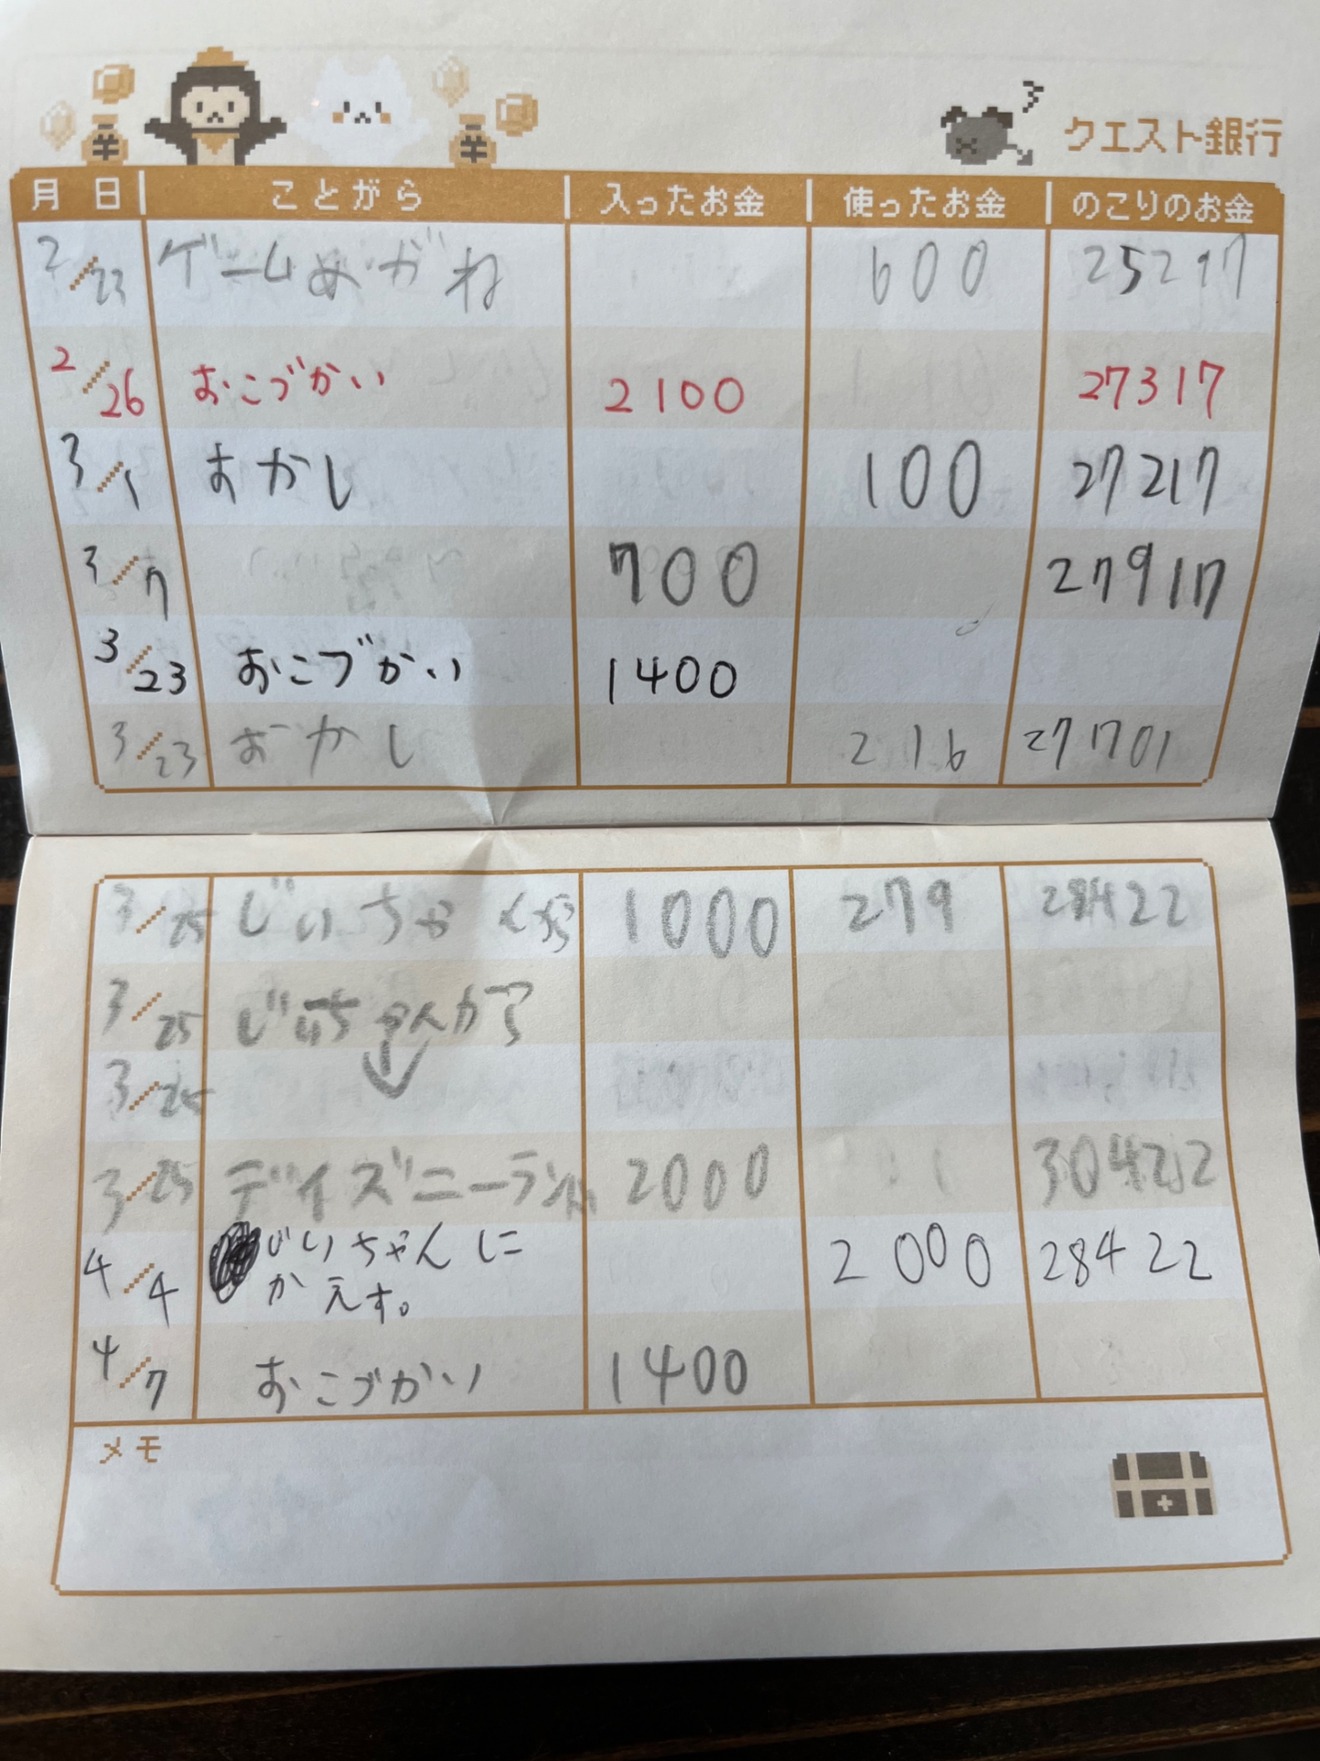 クエスト銀行
月 日 ことがら 入ったお金 使ったお金 のこりのお金
2/23 ゲームめがね 600 25217
2/26 おこづかい 2100 27317
3/1 おかし 100 27217
3/7 700 27917
3/23 おこづかい 1400
3/23 おかし 216 27701
3/25 じいちゃ 1000 279 28422
3/25 じいちゃんから
3/25
3/25 デイズニーランド 2000 30422
4/4 じいちゃんに 2000 28422
かえす。
4/7 おこづかい 1400
メモ